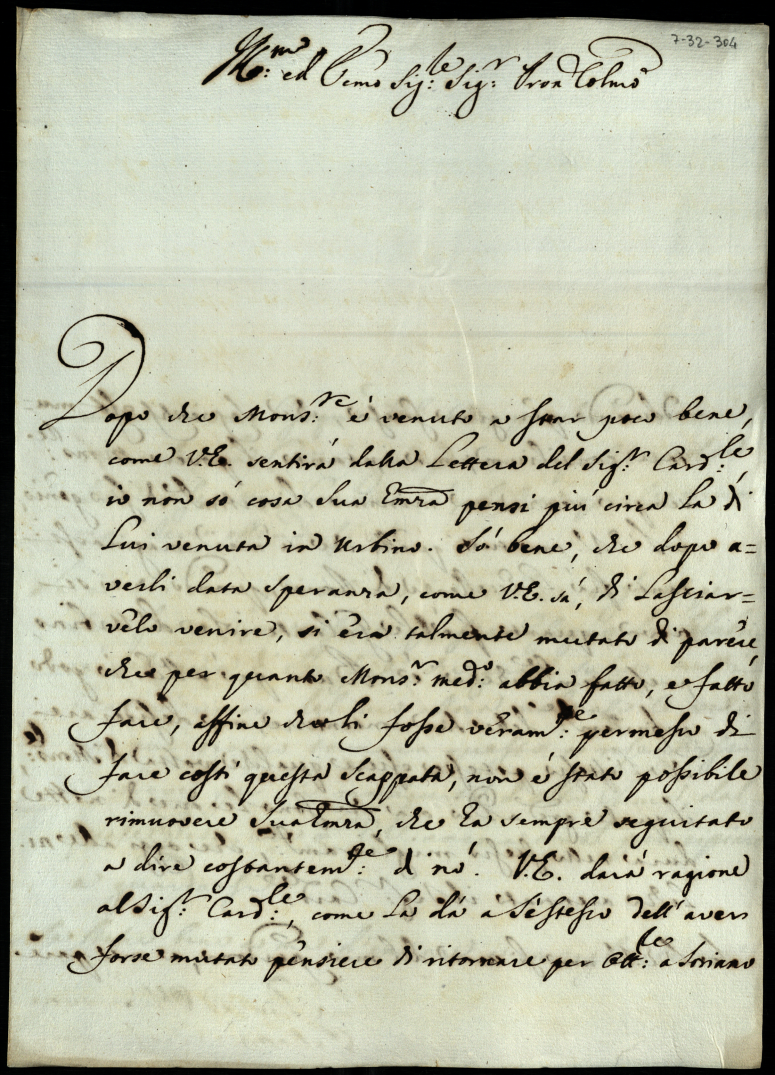 7-32-304
Ill:mo ed Ecc:mo Sig:re Sig:r Pron Colmo
Dopo che Mons:re è venuto a star poco bene,
come V.E. sentirà dalla Lettera del Sig:r Card:le,
io non sò cosa Sua Emza pensi più circa la di
Lui venuta in Urbino. Sò bene, che dopo a=
verli data speranza, come V.E. sà, di lasciar=
velo venire, si era talmente mutato di parere,
che per quanto Mons:r med:o abbia fatto, e fatto
fare, affine che li fosse veram:te permesso di
fare costì questa scappata, non è stato possibile
rimuovere Sua Emza, che ha sempre seguitato
a dire costantem:te di nò. V.E. darà ragione
al Sig:r Card:le, come la dà a sè stesso dell'aver
forse mutato pensiere di ritornare per Ott:re a Soriano